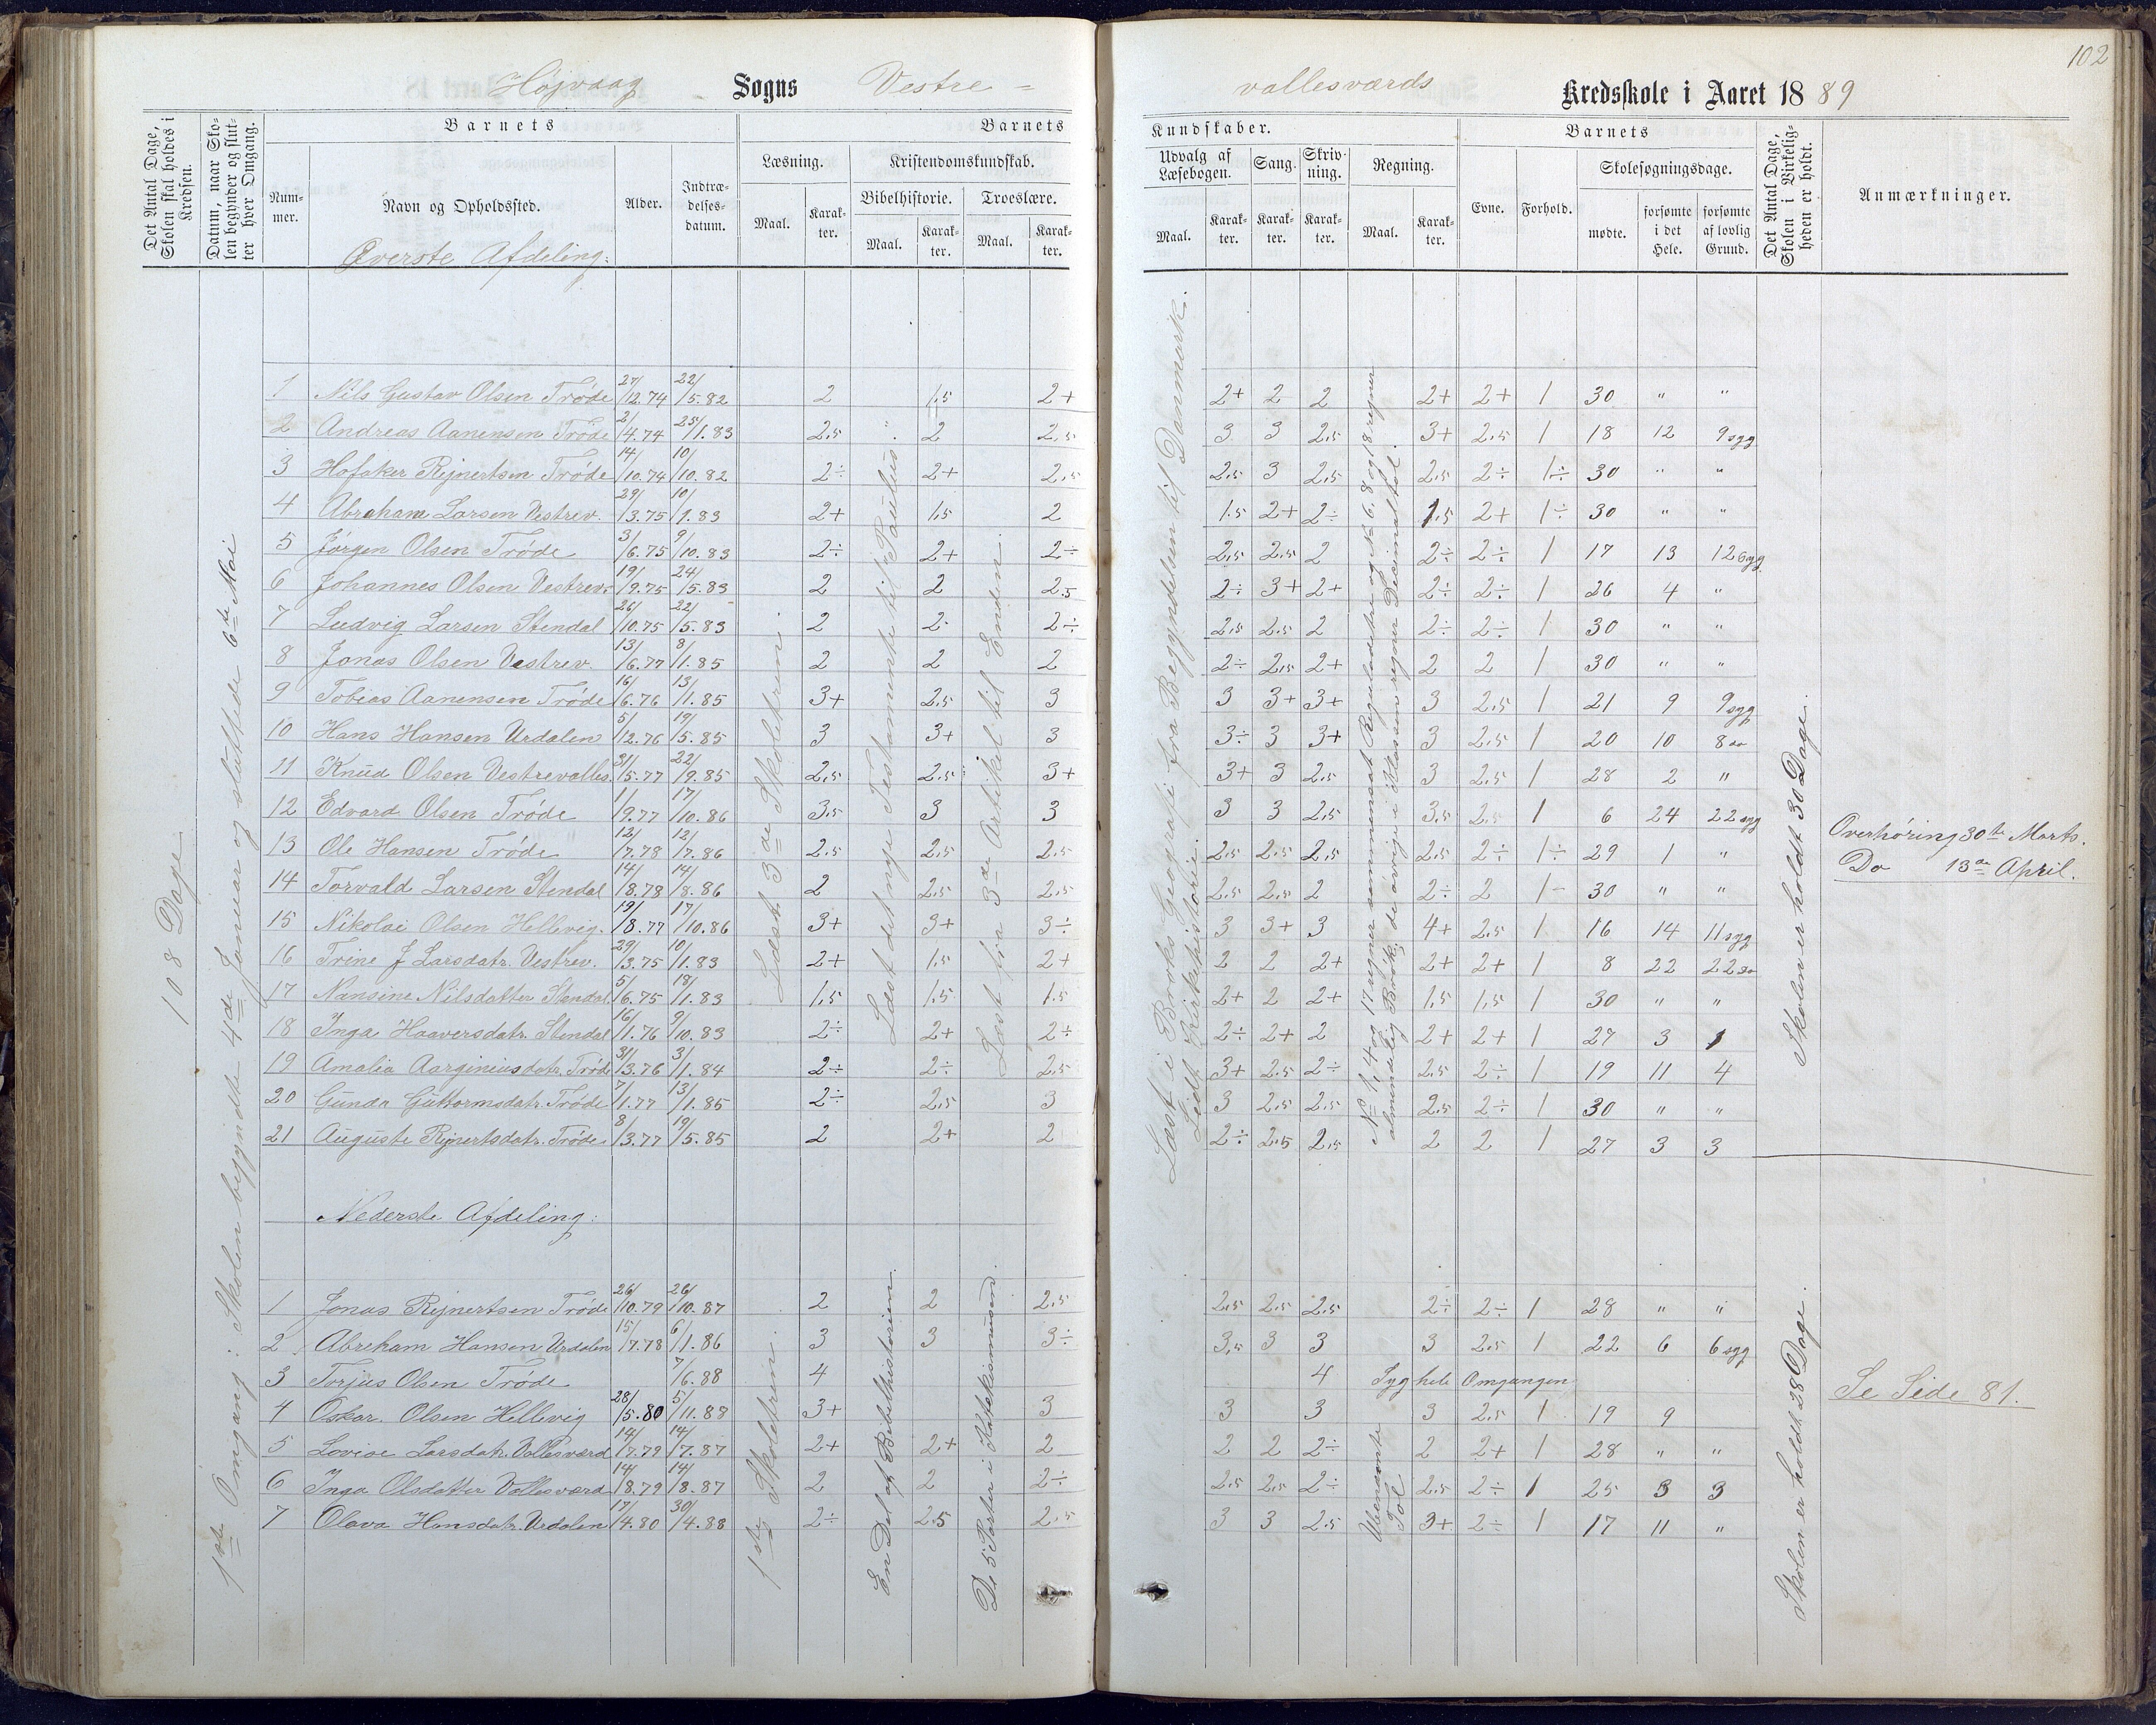 102
Højvaag Sogns Vestre-
vallesværds Kredsskole i Aaret 1889
Det Antal Dage, Skolen skal holdes i Kredsen.
Datum, naar Skolen begynder og slutter hver Omgang.
Barnets
Nummer.
Navn og Opholdssted.
Alder.
Indtrædelsesdatum.
Barnets
Læsning.
Kristendomskundskab.
Maal.
Karakter.
Bibelhistorie.
Troeslære.
Maal.
Karakter.
Maal.
Karakter.
Kundskaber.
Udvalg af Læsebogen.
Sang.
Skrivning.
Regning.
Maal.
Karakter.
Karakter.
Karakter.
Maal.
Karakter.
Barnets
Evne.
Forhold.
Skolesøgningsdage.
mødte.
forsømte i det Hele.
forsømte af lovlig Grund.
Det Antal Dage, Skolen i Virkeligheden er holdt.
Anmærkninger.
Øverste Afdeling:
108 Dage
1ste Omgang: Skolen begyndte 4de Januar og sluttede 6te Mai
Læst 3de Skoletrin.
Læst det nye Testamente til Paulus
Læst fra 3de Artikel til Enden.
Læst i Broks Geografi fra Begyndelsen til Danmark.
Lidt Kirkehistorie.
No 1, 4 og 17 regner sammensat Reguladetri og No 6, 8 og 18 regner
almindelig Brøk, de øvrige i Klassen regner Decimaltal.
Skolen er holdt 30 Dage.
1 Nils Gustav Olsen Trøde 27/12.74 22/5.82 2 1.5 2+ 2+ 2 2 2+ 2+ 1 30 " "
2 Andreas Aanensen Trøde 2/4.74 25/1.83 2.5 2 2.5 3 3 2.5 3+ 2.5 1 18 12 9 syg
3 Hofaker Rejnertsen Trøde 14/10.74 10/10.82 2÷ 2+ 2.5 2.5 3 2.5 2.5 2÷ 1÷ 30 " "
4 Abraham Larsen Vestrev. 29/3.75 10/1.83 2+ 1.5 2 1.5 2+ 2÷ 1.5 2+ 1÷ 30 " "
5 Jørgen Olsen Trøde 3/6.75 9/10.83 2÷ 2+ 2÷ 2.5 2.5 2 2÷ 2÷ 1 17 13 12 syg
6 Johannes Olsen Vestrev. 19/9.75 24/5.83 2 2 2.5 2÷ 3+ 2+ 2÷ 2÷ 1 26 4 "
7 Ludvig Larsen Stendal 26/10.75 22/5.83 2 2 2÷ 2.5 2.5 2 2÷ 2÷ 1 30 " "
8 Jonas Olsen Vestrev. 13/6.77 8/1.85 2 2 2 2÷ 2.5 2+ 2 2 1 30 " "
9 Tobias Aanensen Trøde 16/6.76 13/1.85 3+ 2.5 3 3 3+ 3+ 3 2.5 1 21 9 9 syg
10 Hans Hansen Urdalen 5/12.76 19/5.85 3 3+ 3 3÷ 3 3+ 3 2.5 1 20 10 8 do
11 Knud Olsen Vestrevalles. 31/5.77 22/9.85 2.5 2.5 3+ 3+ 3 2.5 3 2.5 1 28 2 "
12 Edvard Olsen Trøde 1/9.77 17/10.86 3.5 3 3 3 3 2.5 3.5 2.5 1 6 24 22 syg
13 Ole Hansen Trøde 12/7.78 12/7.86 2.5 2.5 2.5 2.5 2.5 2.5 2.5 2÷ 1÷ 29 1 "
14 Torvald Larsen Stendal 14/8.78 14/8.86 2 2.5 2.5 2.5 2.5 2 2÷ 2 1- 30 " "
15 Nikolai Olsen Hellevig. 19/8.77 17/10.86 3+ 3+ 3÷ 3 3+ 3 4+ 2.5 1 16 14 11 syg
16 Trine J Larsdatr. Vestrev. 29/3.75 10/1.83 2+ 1.5 2+ 2 2 2+ 2+ 2+ 1 8 22 22 do
17 Nansine Nilsdatter Stendal. 5/6.75 18/1.83 1.5 1.5 1.5 2+ 2 2+ 1.5 1.5 1 30 " "
18 Inga Haaversdatr. Stendal 16/1.76 9/10.83 2÷ 2+ 2÷ 2÷ 2+ 2 2+ 2+ 1 27 3 1
19 Amalia Aarginiusdatr. Trøde 31/3.76 3/1.84 2÷ 2÷ 2.5 3+ 2.5 2÷ 2.5 2÷ 1 19 11 4
20 Gunda Guttormsdatr. Trøde 7/1.77 13/1.85 2÷ 2.5 3 3 2.5 2.5 2.5 2÷ 1 30 " "
21 Auguste Rejnertsdatr. Trøde 8/3.77 19/5.85 2 2+ 2 2÷ 2.5 2.5 2 2 1 27 3 3
Overhøring 30te Marts.
Do 13de April.
Nederste Afdeling:
1ste Skoletrin.
En Del af Bibelhistorien.
De 5 Parter i Katekismusen.
Ubenævnte Tal
Skolen er holdt 28 Dage.
1 Jonas Rejnertsen Trøde 26/10.79 26/10.87 2 2 2.5 2.5 2.5 2.5 2÷ 2÷ 1 28 " "
2 Abreham Hansen Urdalen 15/7.78 6/1.86 3 3 3÷ 3.5 3 3 3 2.5 1 22 6 6 syg
3 Torjus Olsen Trøde 7/6.88 4 4 Syg hele Omgangen Se Side 81.
4 Oskar. Olsen Hellevig 28/5.80 5/11.88 3+ 3 3 3 3 2.5 1 19 9
5 Lovise Larsdatr. Vallesværd 14/7.79 14/7.87 2+ 2+ 2 2 2 2÷ 2 2+ 1 28 " "
6 Inga Olsdatter Vallesværd 14/8.79 14/8.87 2 2 2÷ 2.5 2.5 2÷ 2.5 2÷ 1 25 3 3
7 Olava Hansdatr. Urdalen 17/4.80 30/4.88 2÷ 2.5 2.5 3 3 2.5 3+ 2÷ 1 17 11 "